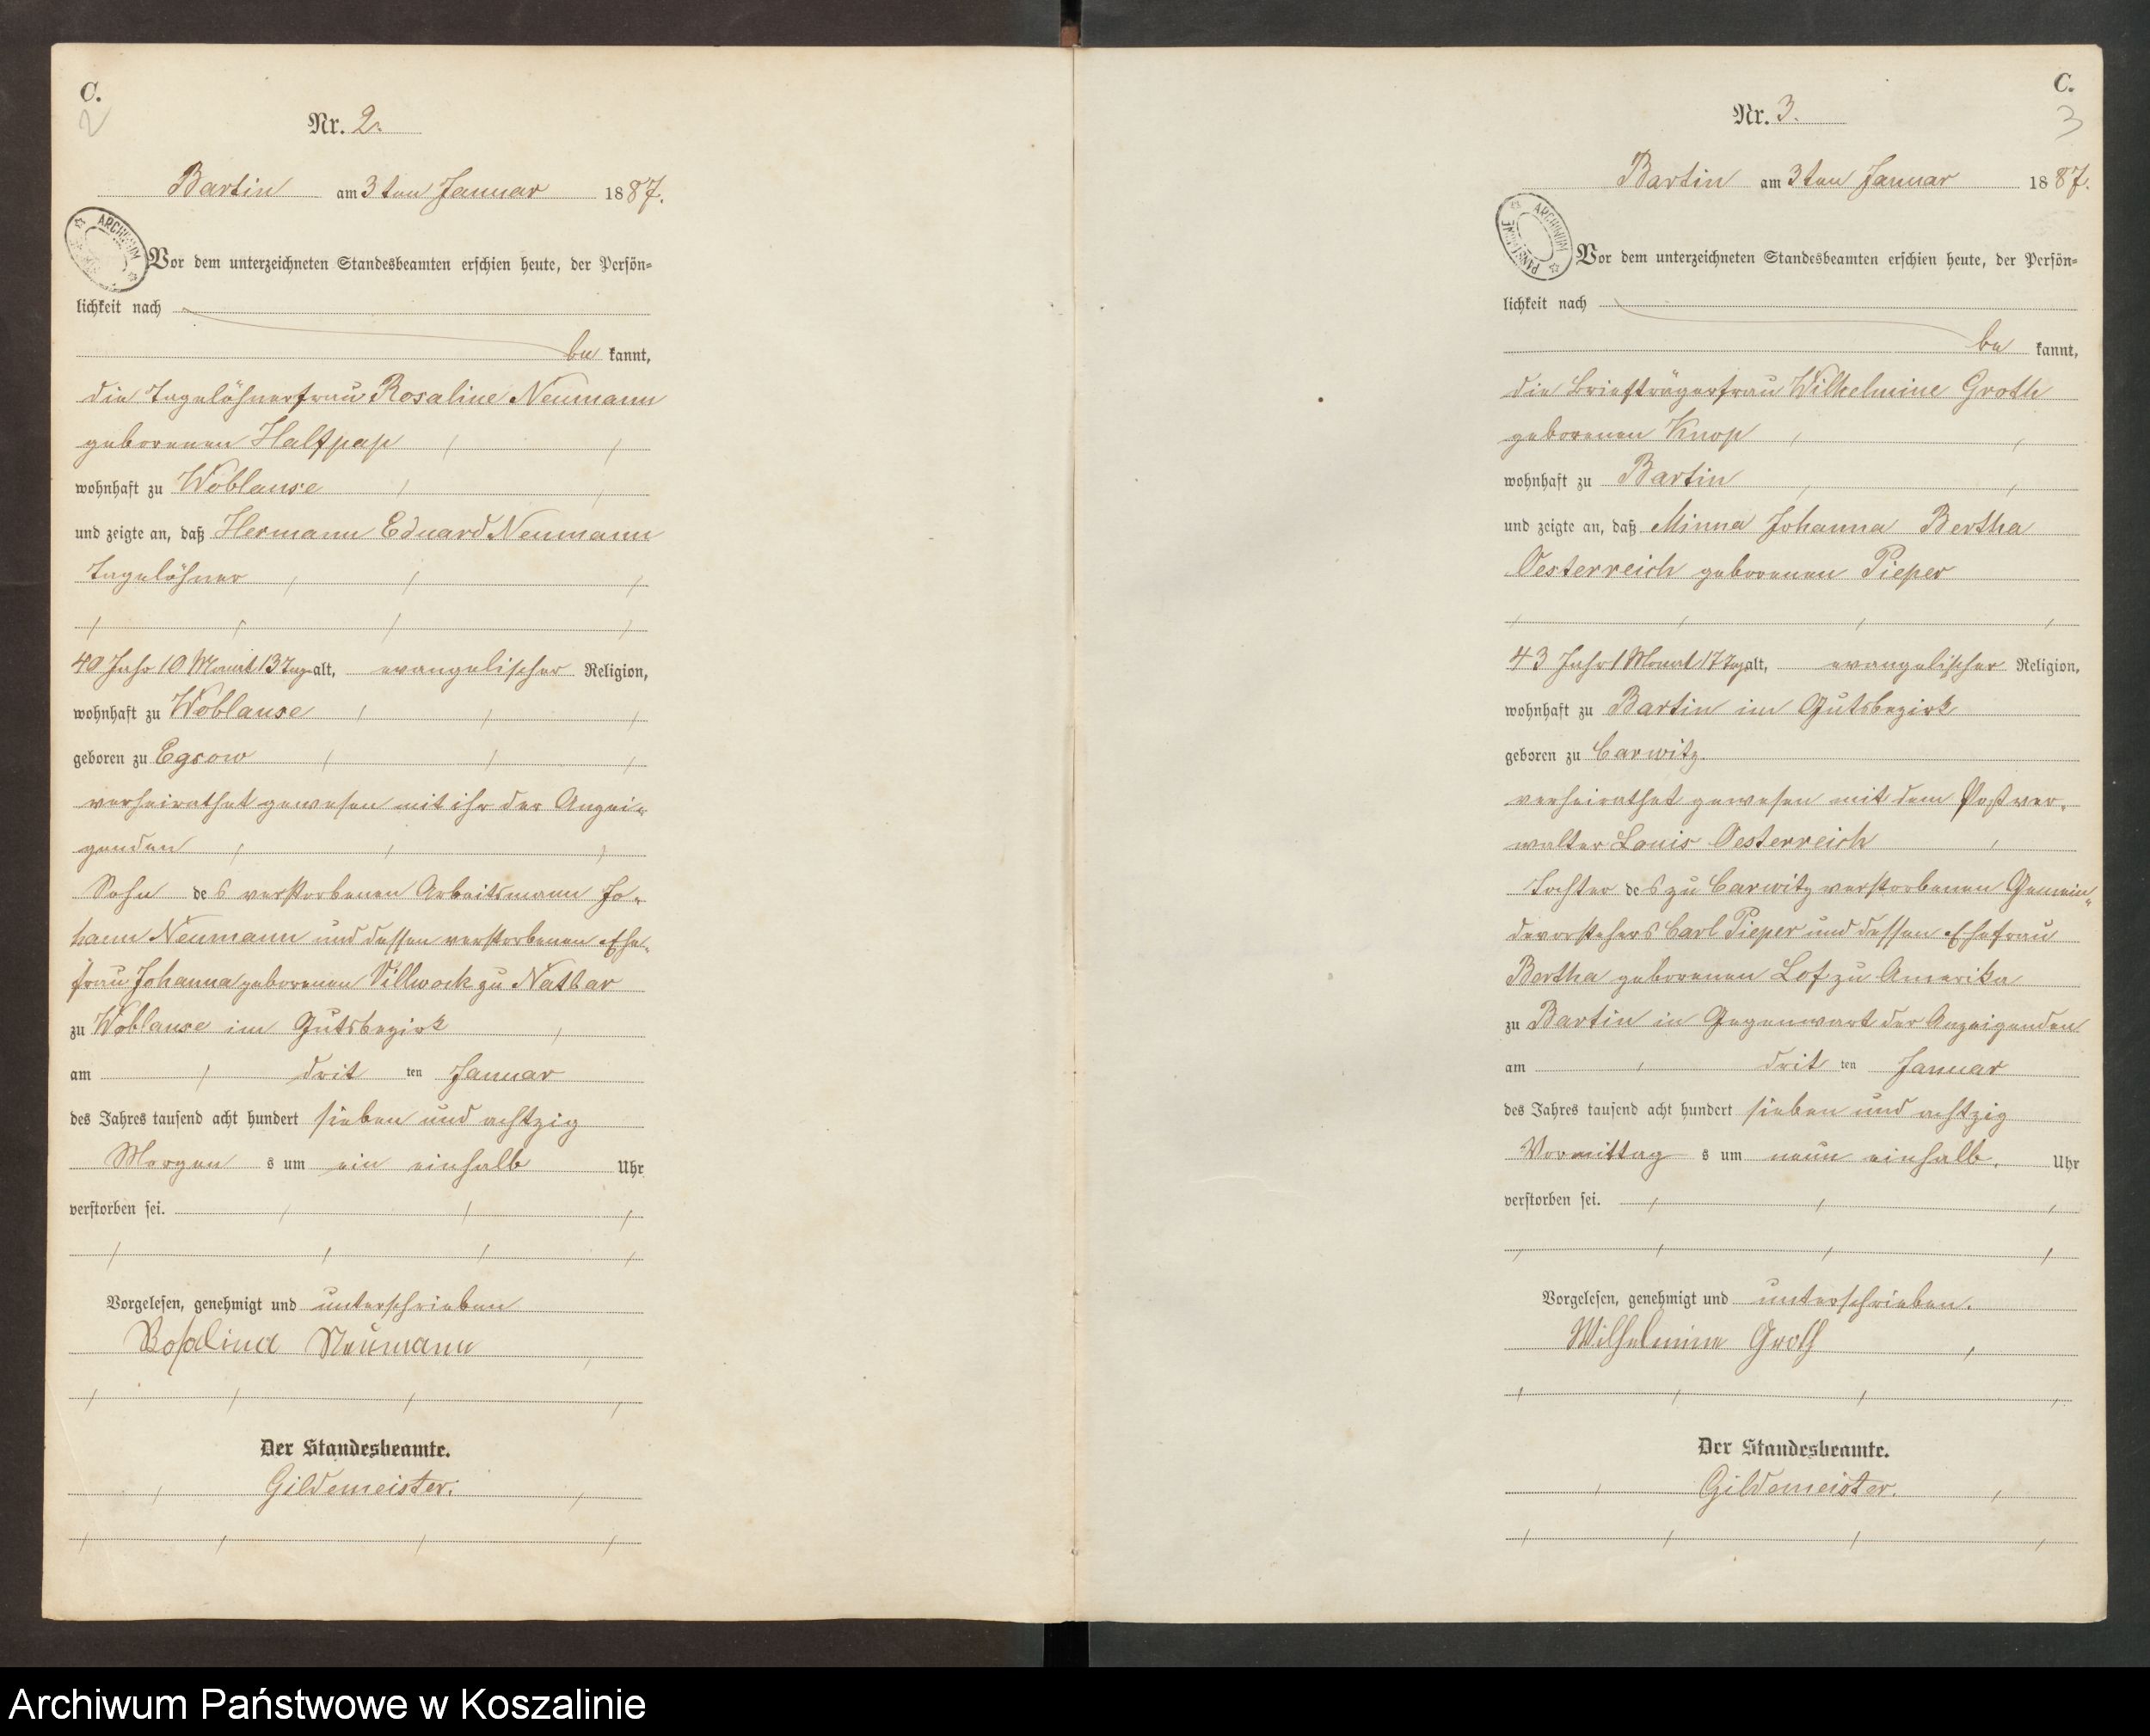 C.
2
Nr. 2.
Bartin am 3ten Januar 1887.
ARCHIWUM
Vor dem unterzeichneten Standesbeamten erschien heute, der Persön=
lichkeit nach
be kannt,
die Tagelöhnerfrau Rosaline Neumann
geborenen Halfpap
wohnhaft zu Woblanse
und zeigte an, daß Hermann Eduard Neumann
Tagelöhner
40 Jahr 10 Monat 13 Tage alt, evangelischer Religion,
wohnhaft zu Woblanse
geboren zu Egsow
verheirathet gewesen mit ihr der Anzei=
genden
Sohn des verstorbenen Arbeitsmann Jo=
hann Neumann und dessen verstorbenen Ehe=
frau Johanna geborenen Villwock zu Natbar
zu Woblanse im Gutsbezirk
am dritten Januar
des Jahres tausend acht hundert sieben und achtzig
Morgens um ein einhalb Uhr
verstorben sei.
Vorgelesen, genehmigt und unterschrieben
Rosalina Neumann
Der Standesbeamte.
Gildemeister.
C.
3
Nr. 3.
Bartin am 3ten Januar 1887.
ARCHIWUM PAŃSTWOWE
Vor dem unterzeichneten Standesbeamten erschien heute, der Persön=
lichkeit nach
be kannt,
die Briefträgerfrau Wilhelmine Groth
geborenen Knop
wohnhaft zu Bartin
und zeigte an, daß Minna Johanna Bertha
Oesterreich geborenen Pieper
43 Jahr 1 Monat 17 Tag alt, evangelischer Religion,
wohnhaft zu Bartin im Gutsbezirk
geboren zu Carwitz.
verheirathet gewesen mit dem Postver=
walter Louis Oesterreich
Tochter des zu Carwitz verstorbenen Gemein=
devorstehers Carl Pieper und dessen Ehefrau
Bertha geborenen Lof zu Amerika
zu Bartin in Gegenwart der Anzeigenden
am dritten Januar
des Jahres tausend acht hundert sieben und achtzig
Vormittags um neun einhalb. Uhr
verstorben sei.
Vorgelesen, genehmigt und unterschrieben.
Wilhelmine Groth
Der Standesbeamte.
Gildemeister.
Archiwum Państwowe w Koszalinie